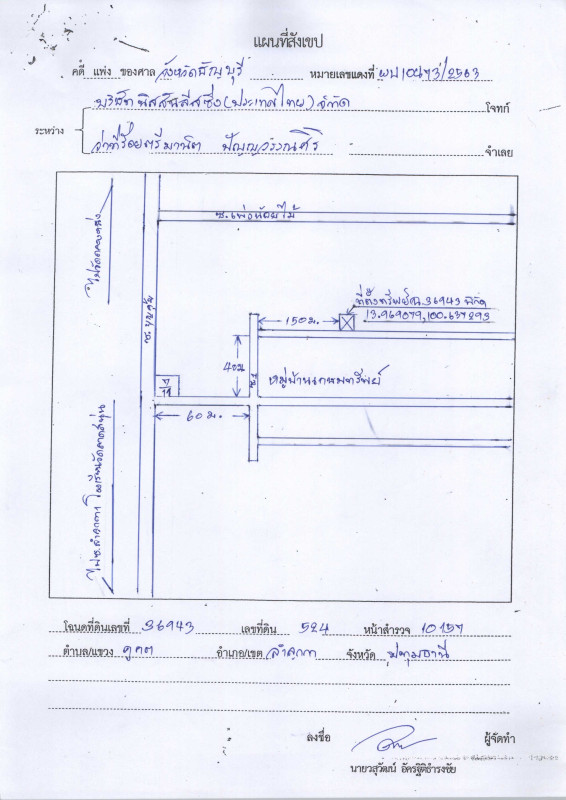 แผนที่สังเขป
คดี แพ่ง ของศาล จังหวัดธัญบุรี หมายเลขแดงที่ ผบ10473/2563
บริษัท นิสสัน ลีสซิ่ง (ประเทศไทย) จำกัด โจทก์
ระหว่าง
ว่าที่ร้อยตรีมานิต ปัญญาวรรณศิริ จำเลย
ซ.บุญคุ้ม
ที่ตั้งทรัพย์ฉ.36943 พิกัด
13.969079,100.637293
150 ม.
40ม
ซ.1
หมู่บ้านเกษมทรัพย์
60 ม.
โฉนดที่ดินเลขที่ 36943 เลขที่ดิน 524 หน้าสำรวจ 10157
ตำบล/แขวง คูคต อำเภอ/เขต ลำลูกกา จังหวัด ปทุมธานี
ลงชื่อ ผู้จัดทำ
นายวสุวัฒน์ อัครฐิติธำรงชัย